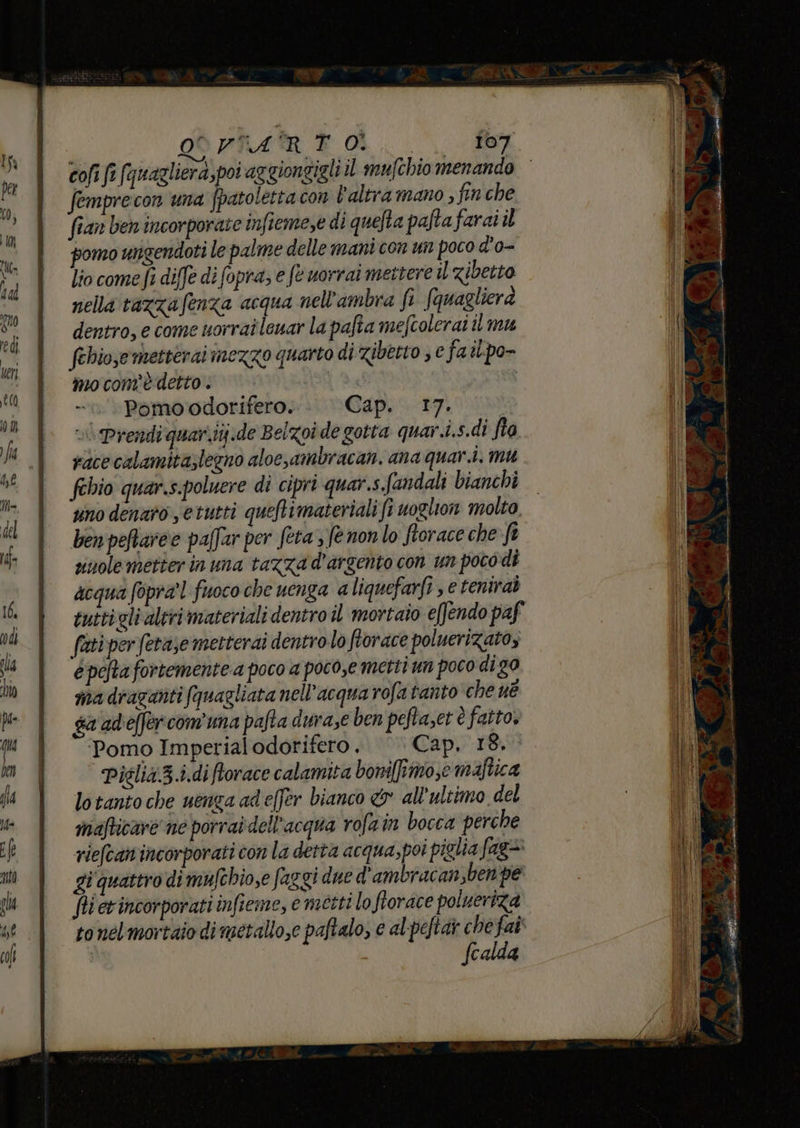 QVARTO. 107
cosi si squaglierà,poi aggiongigli il muschio menando
sempre con una spatoletta con l'altra mano , fin che
sian ben incorporate insieme,e di questa pasta farai il
pomo ungendoti le palme delle mani con un poco d'o-
lio come si disse di sopra, e se uorrai mettere il zibetto
nella tazza senza acqua nell'ambra si squaglierà
dentro, e come uorrai leuar la pasta mescolerai il mu
schio,e metterai mezzo quarto di zibetto , e fa il po-
mo com'è detto .
Pomo odorifero. Cap. 17.
Prendi quar.iij.de Belzoi de gotta quar.i.s.di sto
race calamita,legno aloe,ambracan. ana quar.i. mu
schio quar.s.poluere di cipri quar.s.sandali bianchi
uno denaro , e tutti questi materiali si uoglion molto
ben pestare e passar per seta , se non lo storace che si
uuole metter in una tazza d'argento con un poco di
acqua sopra'l fuoco che uenga a liquefarsi , e tenirai
tutti gli altri materiali dentro il mortaio essendo pas
sati per seta,e metterai dentro lo storace poluerizato,
e pesta fortemente a poco a poco,e metti un poco di go
ma draganti squagliata nell'acqua rosa tanto che ue
ga ad esser com'una pasta dura,e ben pesta,et è fatto.
Pomo Imperial odorifero . Cap. 18.
Piglia.ʒ.i.di storace calamita bonissimo,e mastica
lo tanto che uenga ad esser bianco & all'ultimo del
masticare ne porrai dell'acqua rosa in bocca perche
riescan incorporati con la detta acqua,poi piglia sag-
gi quattro di muschio,e saggi due d'ambracan,ben pe
sti et incorporati insieme, e metti lo storace polueriza
to nel mortaio di metallo,e pastalo, e al pestar che fai
scalda